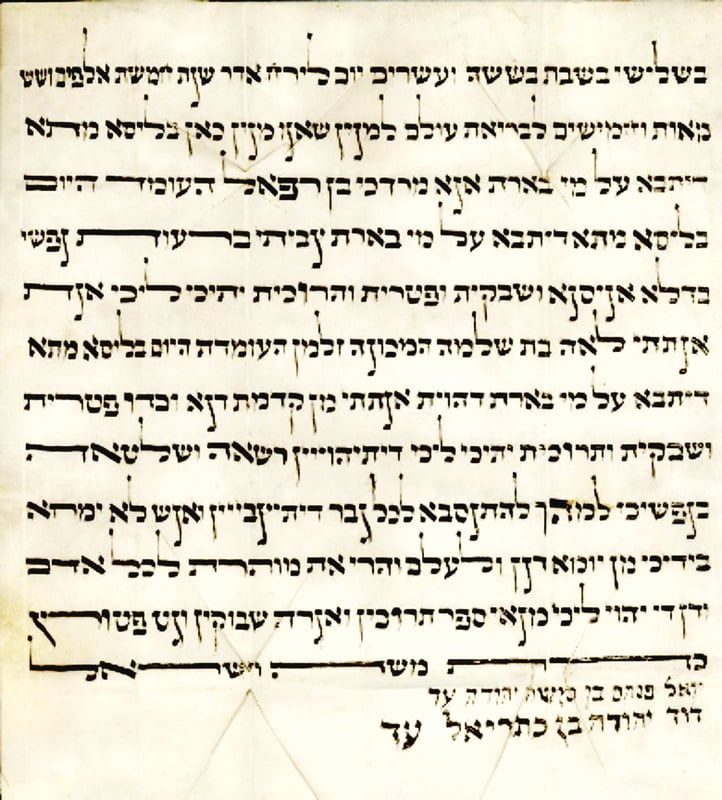 בשלישי בשבת בששה ועשרים יום לירח אדר שנת חמשת אלפים ושש
מאות וחמישים לבריאת עולם למנין שאנו מנין כאן בליסא מתא
דיתבא על מי בארת אנא מרדכי בן רפאל העומד היום
בליסא מתא דיתבא על מי בארת צביתי ברעות נפשי
בדלא אניסנא ושבקית ופטרית ותרוכית יתיכי ליכי אנת
אנתתי לאה בת שלמה המכונה זלמן העומדת היום בליסא מתא
דיתבא על מי בארת דהוית אנתתי מן קדמת דנא וכדו פטרית
ושבקית ותרוכית יתיכי ליכי דיתיהוייין רשאה ושלטאה
בנפשיכי למהך להתנסבא לכל גבר דיתיצבייין ואנש לא ימחא
בידיכי מן יומא דנן ולעלם והרי את מותרת לכל אדם
ודן די יהוי ליכי מנאי ספר תרוכין ואגרת שבוקין וגט פטורין
כדת משה וישראל
יואל פנחס בן משה יהודה עד
דוד יהודה בן כתריאל עד